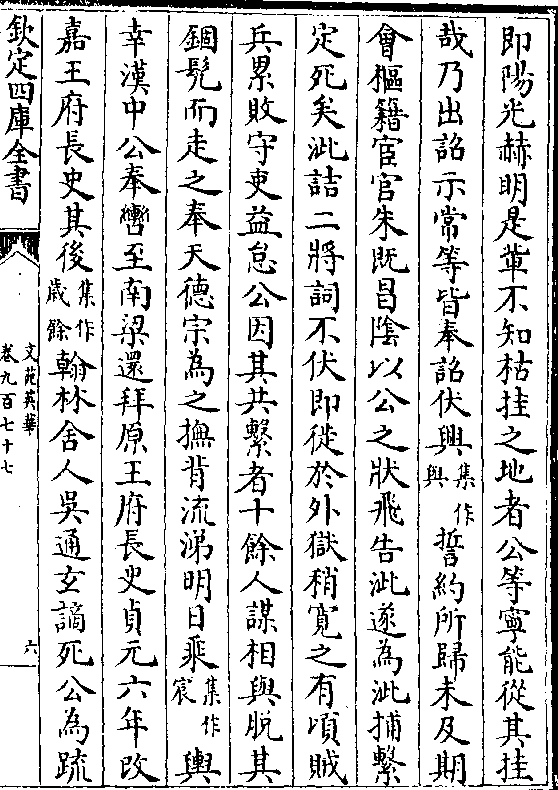 即陽光赫明是軰不知枯挂之地者公等寧能從其挂
哉乃出詔示常等皆奉詔伏興集作與誓約所歸未及期
會樞籍宦官朱既昌陰以公之狀飛告泚遂為泚捕繫
定死矣泚詰二將詞不伏即從於外獄稍寛之有頃賊
兵累敗守吏益怠公因其共繫者十餘人謀相與脱其
錮髠而走之奉天德宗為之撫背流涕明日乘集作宸輿
幸漢中公奉轡至南梁還拜原王府長史貞元六年改
嘉王府長史其後集作歲餘翰林舍人吳通玄謫死公為疏
欽定四庫全書
文苑英華
卷九百七十七
六